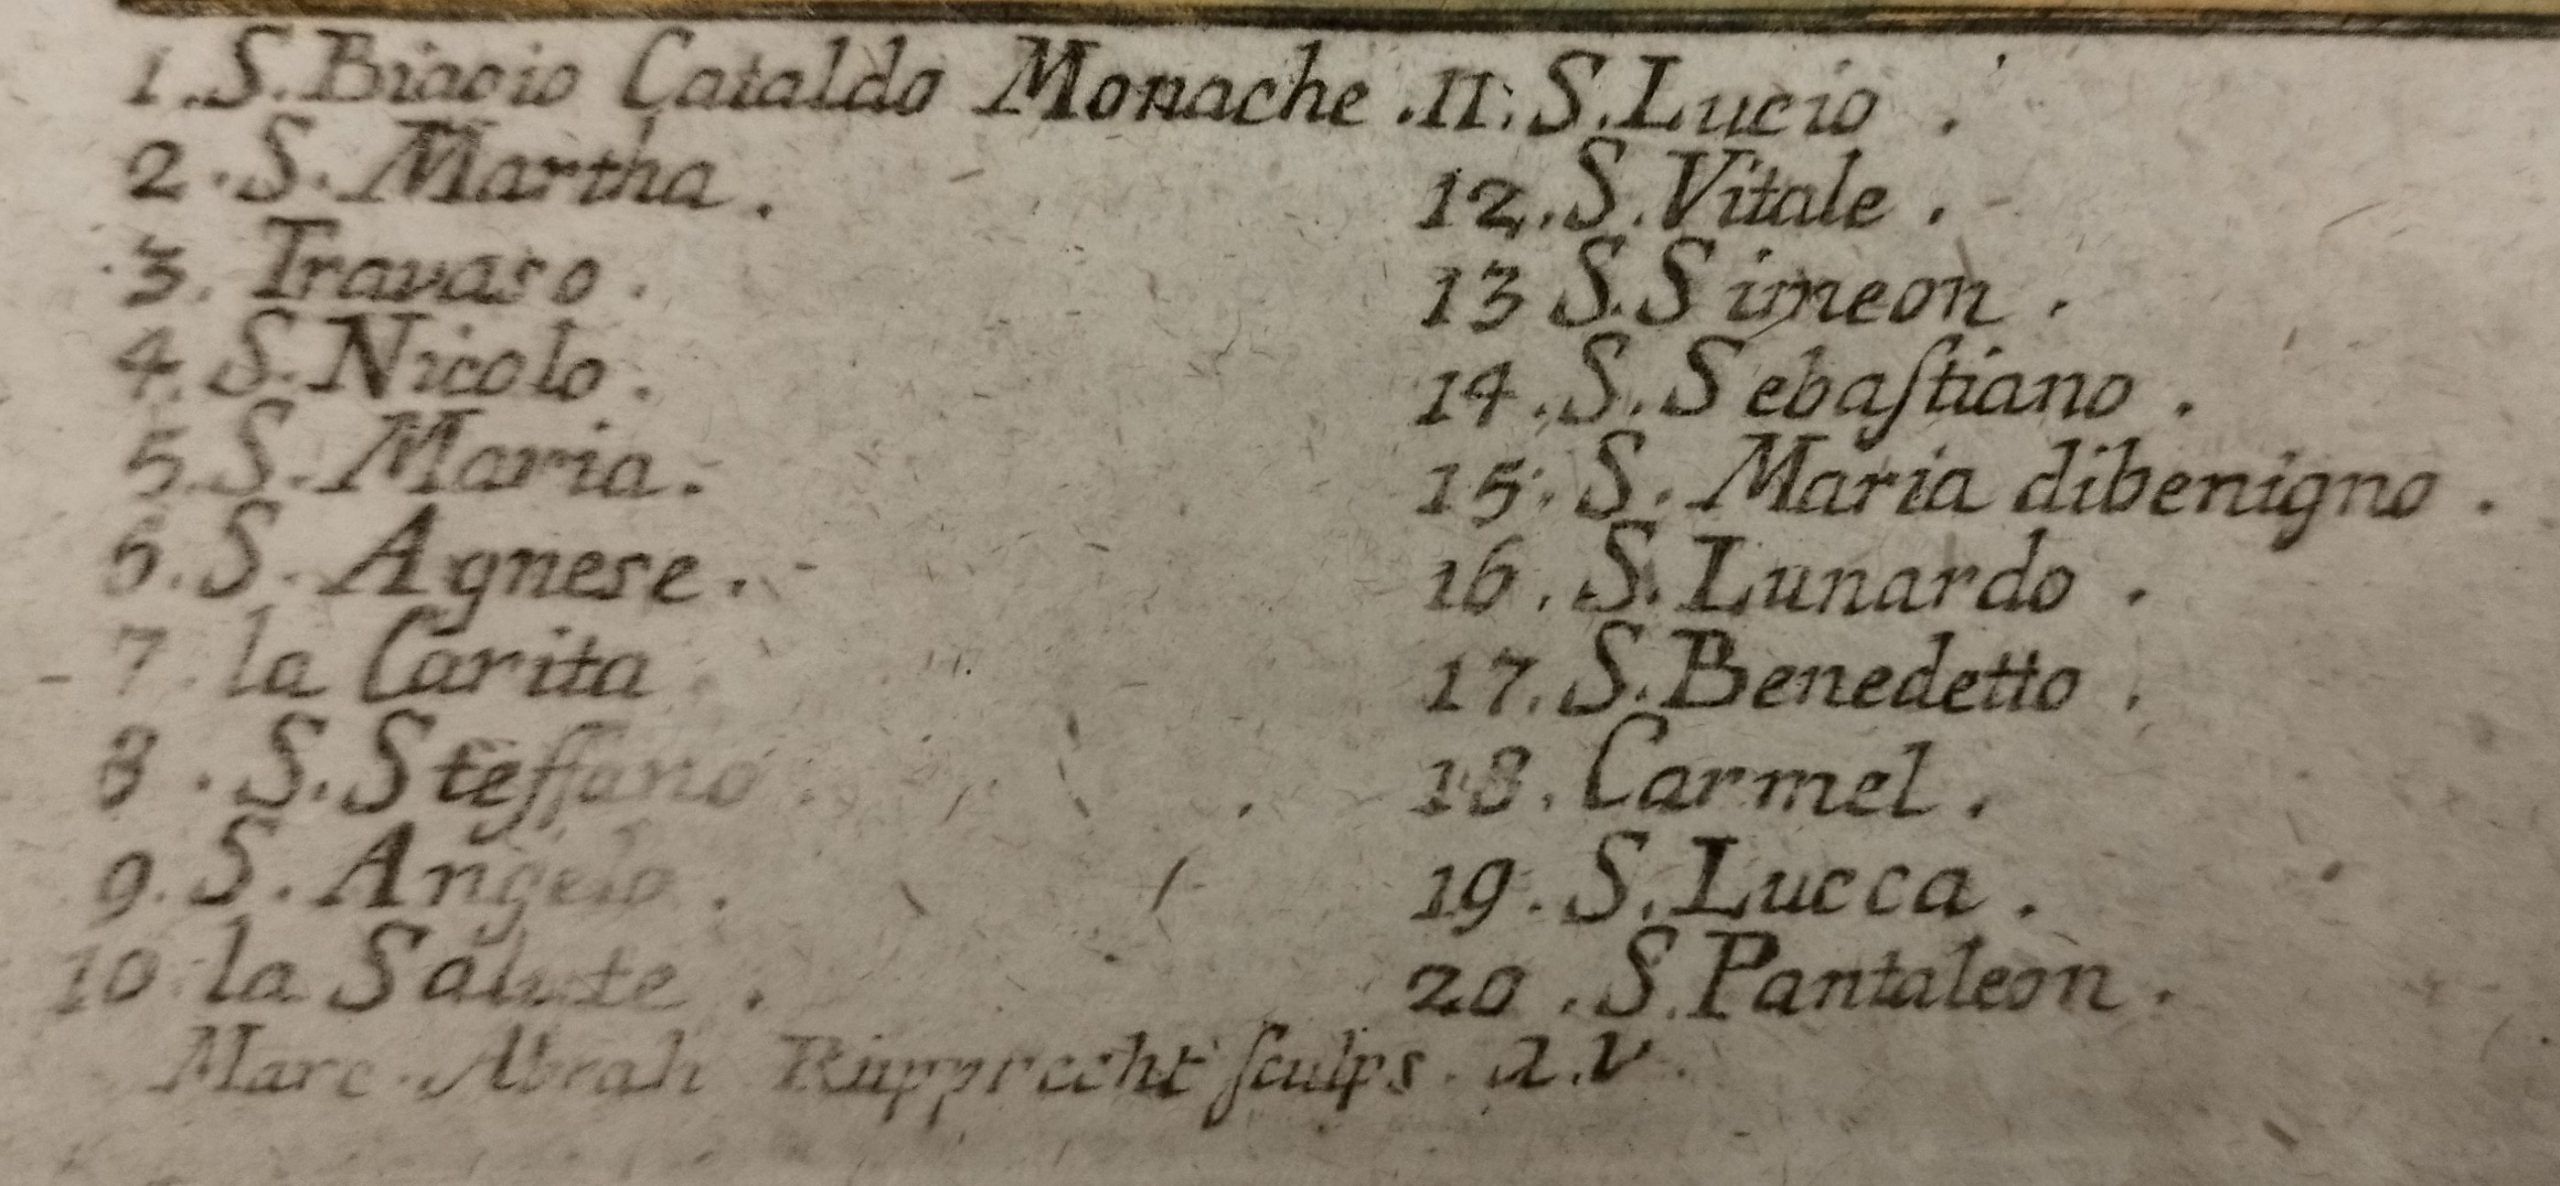 1. S. Biagio Cataldo Monache.
2. S. Martha.
3. Travaso.
4. S. Nicolo.
5. S. Maria.
6. S. Agnese.
7. la Carita
8. S. Steffano.
9. S. Angelo.
10 la Salute.
11. S. Lucio.
12. S. Vitale.
13 S. Simeon.
14. S. Sebaſtiano.
15. S. Maria dibenigno.
16. S. Lunardo.
17. S. Benedetto.
18. Carmel.
19. S. Lucca.
20. S. Pantaleon.
Marc. Abrah Rupprecht ſculps. a.v.